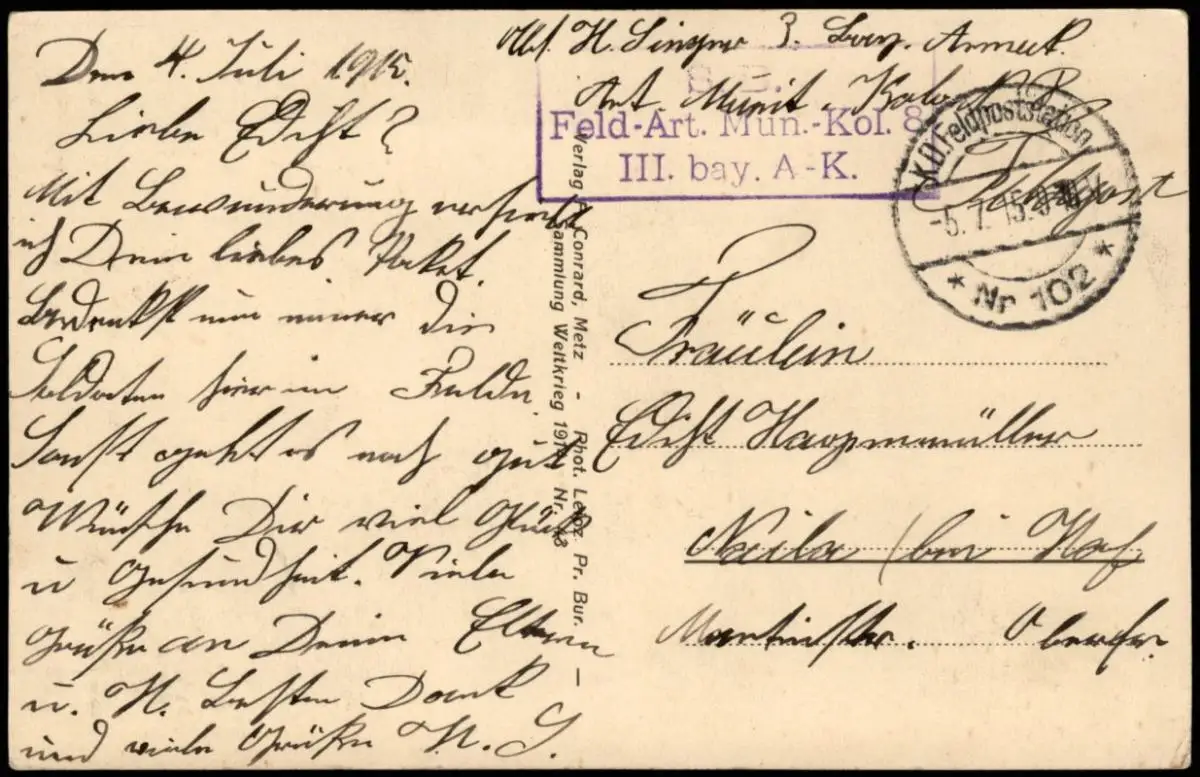 Den 4. Juli 1915.
Liebe Edith?
Mit Bewunderung
ich Dein liebes Paket.
Bedenkst nur immer die
Soldaten hier im Felde.
Sonst geht es noch gut
Wünsche Dir viel Glück
u Gesundheit. Viele
Grüße an Deine Eltern
u. H. Besten Dank
und viele Grüße H. S.
Verlag Conrard, Metz - Phot. Leipz. Pr. Bur. -
Sammlung Weltkrieg 191 Nr.
Abs. H. Singer 3. Bay. Armeek.
Art. Munit. Kolon. 8
Feldpost
S. B.
Feld-Art. Mun.-Kol. 8
III. bay. A-K.
K.D. Feldpoststation
-5. 7. 15.
* Nr 102 *
Fräulein
Edith Hagenmüller
Naila (bei Hof
Martinstr. Oberfr.